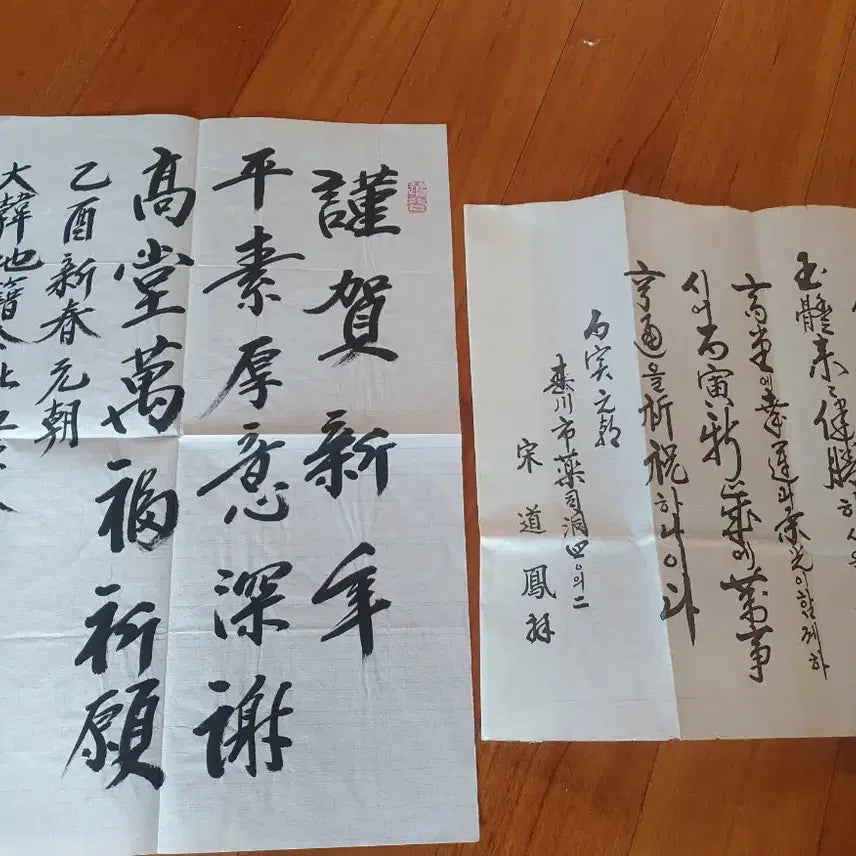 謹賀新年
平素厚意深謝
高堂萬福祈願
乙酉新春元朝
大韓地籍公社
玉體 健勝하시옵
高堂에 幸運과 榮光이 함께하
시어 丙寅新歲에 萬事
亨通을 祈祝하나이다
丙寅元朝
春川市藥司洞四〇의二
宋道鳳 拜